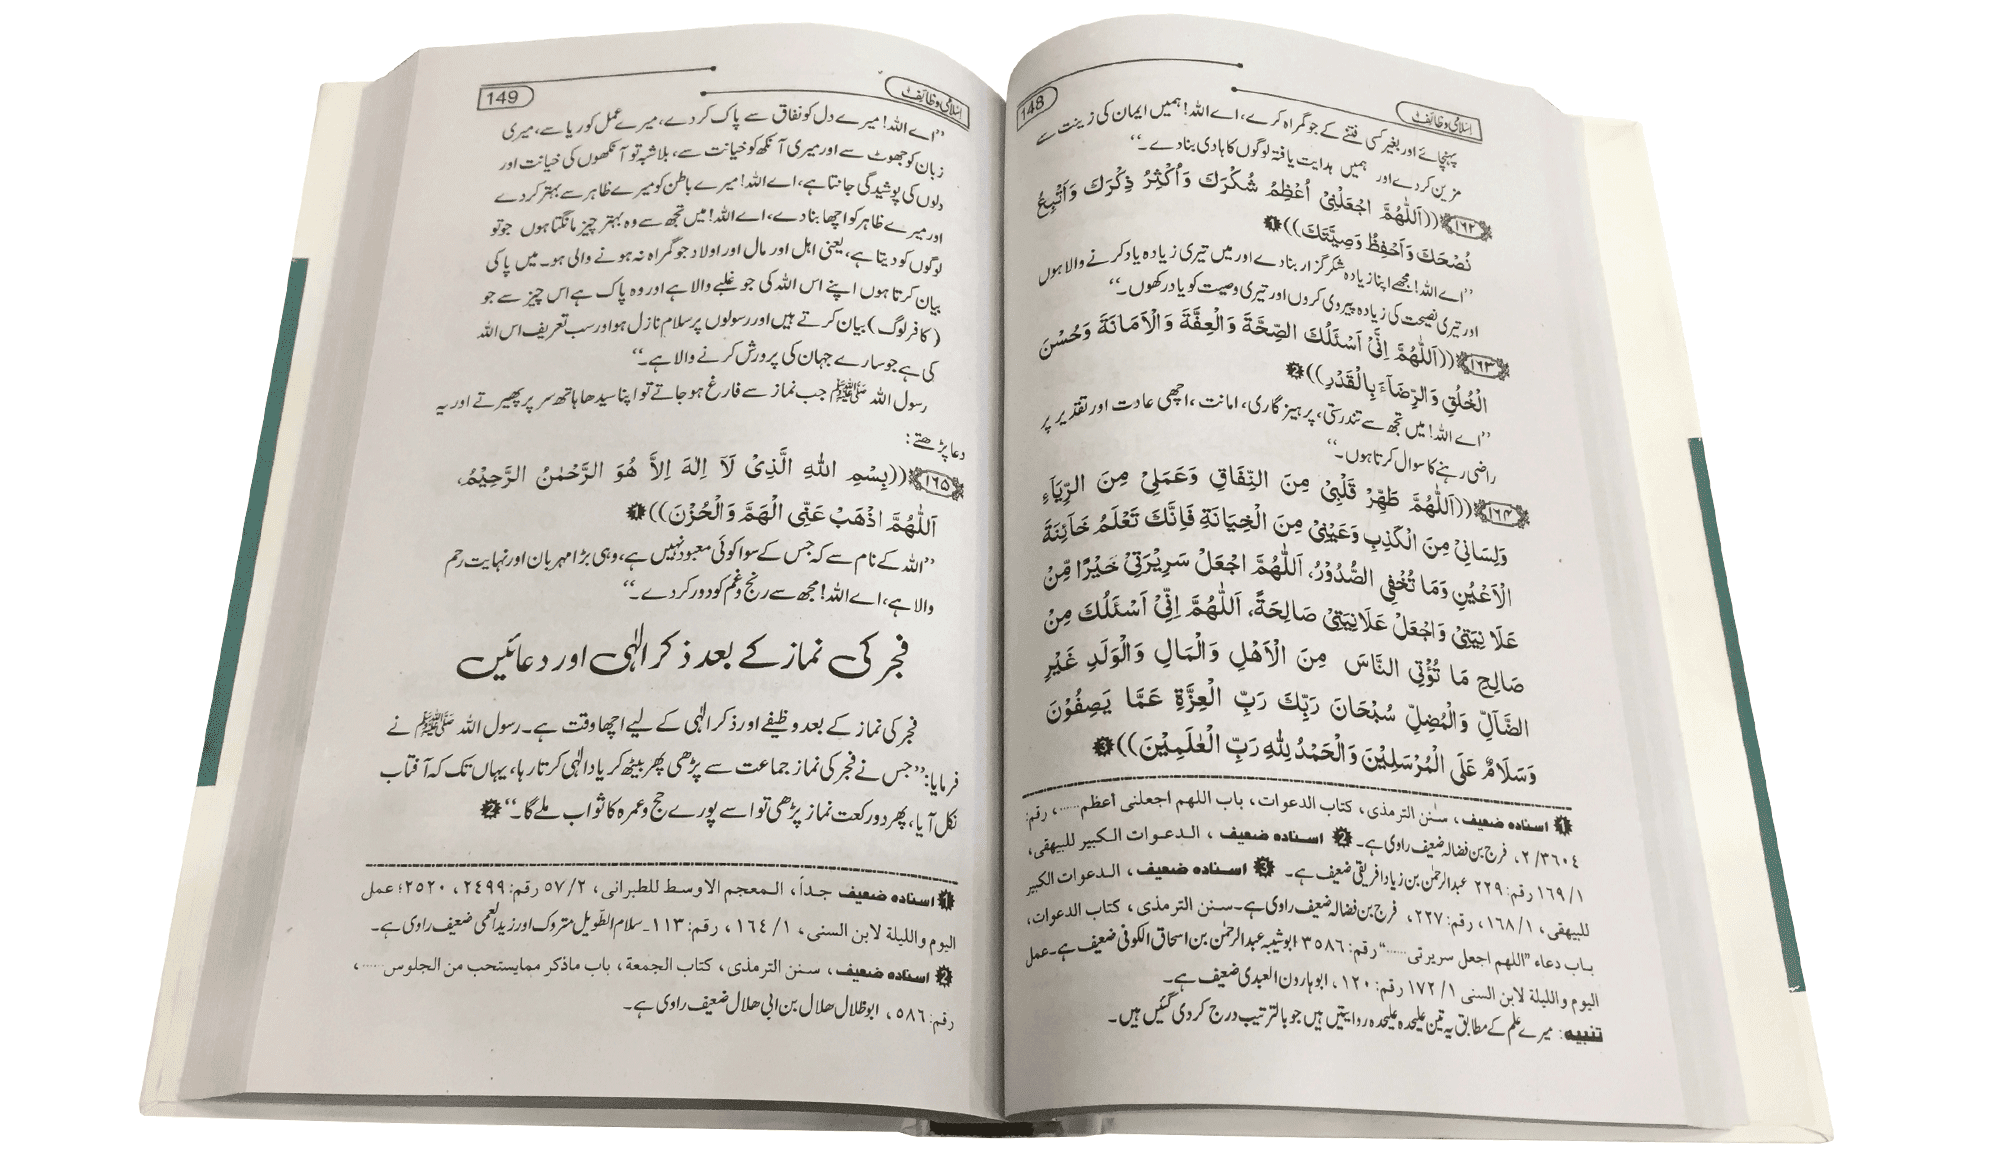 اسلامی وظائف
148
پہنچائے اور بغیر کسی فتنے کے جو گمراہ کرے، اے اللہ! ہمیں ایمان کی زینت سے
مزین کر دے اور ہمیں ہدایت یافتہ لوگوں کا ہادی بنا دے۔‘‘
﴿۱۶۲﴾ ((اَللّٰهُمَّ اجْعَلْنِيْ اُعْظِمُ شُكْرَكَ وَاُكْثِرُ ذِكْرَكَ وَاَتَّبِعُ
نُصْحَكَ وَاَحْفِظُ وَصِيَّتَكَ)) ❶
’’اے اللہ! مجھے اپنا زیادہ شکر گزار بنا دے اور میں تیری زیادہ یاد کرنے والا ہوں
اور تیری نصیحت کی زیادہ پیروی کروں اور تیری وصیت کو یاد رکھوں۔‘‘
﴿۱۶۳﴾ ((اَللّٰهُمَّ اِنِّيْ اَسْئَلُكَ الصِّحَّةَ وَالْعِفَّةَ وَالْاَمَانَةَ وَحُسْنَ
الْخُلُقِ وَالرِّضَآءَ بِالْقَدْرِ)) ❷
’’اے اللہ! میں تجھ سے تندرستی، پرہیز گاری، امانت، اچھی عادت اور تقدیر پر
راضی رہنے کا سوال کرتا ہوں۔‘‘
﴿۱۶۴﴾ ((اَللّٰهُمَّ طَهِّرْ قَلْبِيْ مِنَ النِّفَاقِ وَعَمَلِيْ مِنَ الرِّيَآءِ
وَلِسَانِيْ مِنَ الْكَذِبِ وَعَيْنِيْ مِنَ الْخِيَانَةِ فَاِنَّكَ تَعْلَمُ خَآئِنَةَ
الْاَعْيُنِ وَمَا تُخْفِي الصُّدُوْرُ، اَللّٰهُمَّ اجْعَلْ سَرِيْرَتِيْ خَيْرًا مِّنْ
عَلَانِيَتِيْ وَاجْعَلْ عَلَانِيَتِيْ صَالِحَةً، اَللّٰهُمَّ اِنِّيْ اَسْئَلُكَ مِنْ
صَالِحِ مَا تُؤْتِي النَّاسَ مِنَ الْاَهْلِ وَالْمَالِ وَالْوَلَدِ غَيْرِ
الضَّآلِّ وَالْمُضِلِّ سُبْحَانَ رَبِّكَ رَبِّ الْعِزَّةِ عَمَّا يَصِفُوْنَ
وَسَلَامٌ عَلَى الْمُرْسَلِيْنَ وَالْحَمْدُ لِلّٰهِ رَبِّ الْعٰلَمِيْنَ)) ❸
❶ اسناده ضعيف، سنن الترمذی، کتاب الدعوات، باب اللهم اجعلنی أعظم.....، رقم:
۳۶۰۴/۲، فرج بن فضالہ ضعیف راوی ہے۔ ❷ اسناده ضعيف، الدعوات الکبیر للبیهقی،
۱/۱۶۹ رقم: ۲۲۹ عبدالرحمٰن بن زیاد افریقی ضعیف ہے۔ ❸ اسناده ضعيف، الدعوات الکبیر
للبیهقی، ۱/۱۶۸، رقم: ۲۲۷، فرج بن فضالہ ضعیف راوی ہے۔ سنن الترمذی، کتاب الدعوات،
باب دعاء ’’اللهم اجعل سریرتی.....‘‘ رقم: ۳۵۸۶ ابو شیبہ عبدالرحمٰن بن اسحاق الکوفی ضعیف ہے۔ عمل
الیوم واللیلة لابن السنی ۱/۱۷۲ رقم: ۱۲۰، ابو ہارون العبدی ضعیف ہے۔
تنبیه: میرے علم کے مطابق یہ تین علیحدہ علیحدہ روایتیں ہیں جو بالترتیب درج کر دی گئیں ہیں۔
اسلامی وظائف
149
’’اے اللہ! میرے دل کو نفاق سے پاک کر دے، میرے عمل کو ریا سے، میری
زبان کو جھوٹ سے اور میری آنکھ کو خیانت سے، بلاشبہ تو آنکھوں کی خیانت اور
دلوں کی پوشیدگی جانتا ہے، اے اللہ! میرے باطن کو میرے ظاہر سے بہتر کر دے
اور میرے ظاہر کو اچھا بنا دے، اے اللہ! میں تجھ سے وہ بہتر چیز مانگتا ہوں جو تو
لوگوں کو دیتا ہے، یعنی اہل اور مال اور اولاد جو گمراہ نہ ہونے والی ہو۔ میں پاکی
بیان کرتا ہوں اپنے اس اللہ کی جو غلبے والا ہے اور وہ پاک ہے اس چیز سے جو
(کافر لوگ) بیان کرتے ہیں اور رسولوں پر سلام نازل ہو اور سب تعریف اس اللہ
کی ہے جو سارے جہان کی پرورش کرنے والا ہے۔‘‘
رسول اللہ ﷺ جب نماز سے فارغ ہو جاتے تو اپنا سیدھا ہاتھ سر پر پھیرتے اور یہ
دعا پڑھتے:
﴿۱۶۵﴾ ((بِسْمِ اللّٰهِ الَّذِيْ لَآ اِلٰهَ اِلَّا هُوَ الرَّحْمٰنُ الرَّحِيْمُ،
اَللّٰهُمَّ اذْهَبْ عَنِّي الْهَمَّ وَالْحُزْنَ)) ❶
’’اللہ کے نام سے کہ جس کے سوا کوئی معبود نہیں ہے، وہی بڑا مہربان اور نہایت رحم
والا ہے، اے اللہ! مجھ سے رنج و غم کو دور کر دے۔‘‘
فجر کی نماز کے بعد ذکر الٰہی اور دعائیں
فجر کی نماز کے بعد وظیفے اور ذکر الٰہی کے لیے اچھا وقت ہے۔ رسول اللہ ﷺ نے
فرمایا: ’’جس نے فجر کی نماز جماعت سے پڑھی پھر بیٹھ کر یاد الٰہی کرتا رہا، یہاں تک کہ آفتاب
نکل آیا، پھر دو رکعت نماز پڑھی تو اسے پورے حج و عمرہ کا ثواب ملے گا۔‘‘ ❷
❶ اسناده ضعيف جداً، المعجم الاوسط للطبرانی، ۵۷/۲ رقم: ۲۴۹۹، ۲۵۲۰؛ عمل
الیوم واللیلة لابن السنی، ۱/۱۶۴، رقم: ۱۱۳۔ سلام الطّویل متروک اور زید العمی ضعیف راوی ہے۔
❷ اسناده ضعيف، سنن الترمذی، کتاب الجمعة، باب ماذکر ممایستحب من الجلوس.....،
رقم: ۵۸۶، ابو ظلال ھلال بن ابی ھلال ضعیف راوی ہے۔